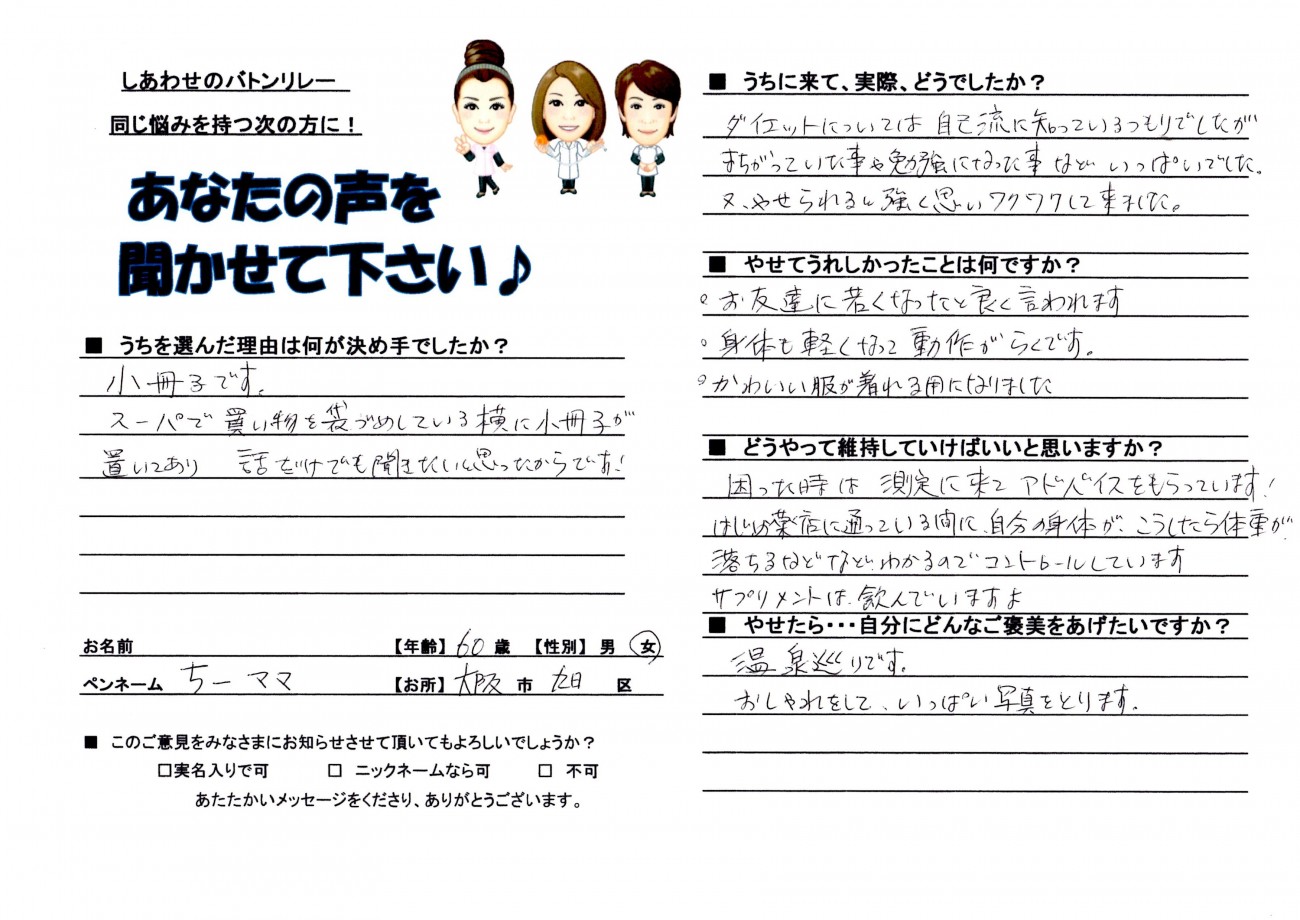 しあわせのバトンリレー
同じ悩みを持つ次の方に！
あなたの声を
聞かせて下さい♪
■ うちを選んだ理由は何が決め手でしたか？
小冊子です。
スーパで買い物を袋づめしている横に小冊子が
置いてあり 話だけでも聞きたいと思ったからです!
お名前 【年齢】 60 歳 【性別】 男 女
ペンネーム ちーママ 【お所】 大阪 市 旭 区
■ このご意見をみなさまにお知らせさせて頂いてもよろしいでしょうか？
□実名入りで可 □ ニックネームなら可 □ 不可
あたたかいメッセージをくださり、ありがとうございます。
■ うちに来て、実際、どうでしたか？
ダイエットについては自己流に知っているつもりでしたが
まちがっていた事や勉強になった事などいっぱいでした。
又、やせられると強く思いワクワクして来ました。
■ やせてうれしかったことは何ですか？
○お友達に若くなったと良く言われます
○身体も軽くなって動作がらくです。
○かわいい服が着れる用になりました
■ どうやって維持していけばいいと思いますか？
困った時は 測定に来て アドバイスをもらっています!
はじめ薬店に通っている間に、自分の身体が、こうしたら体重が
落ちるなどなど、わかるのでコントロールしています
サプリメントは、飲んでいますよ
■ やせたら・・・自分にどんなご褒美をあげたいですか？
温泉巡りです。
おしゃれをして、いっぱい写真をとります。